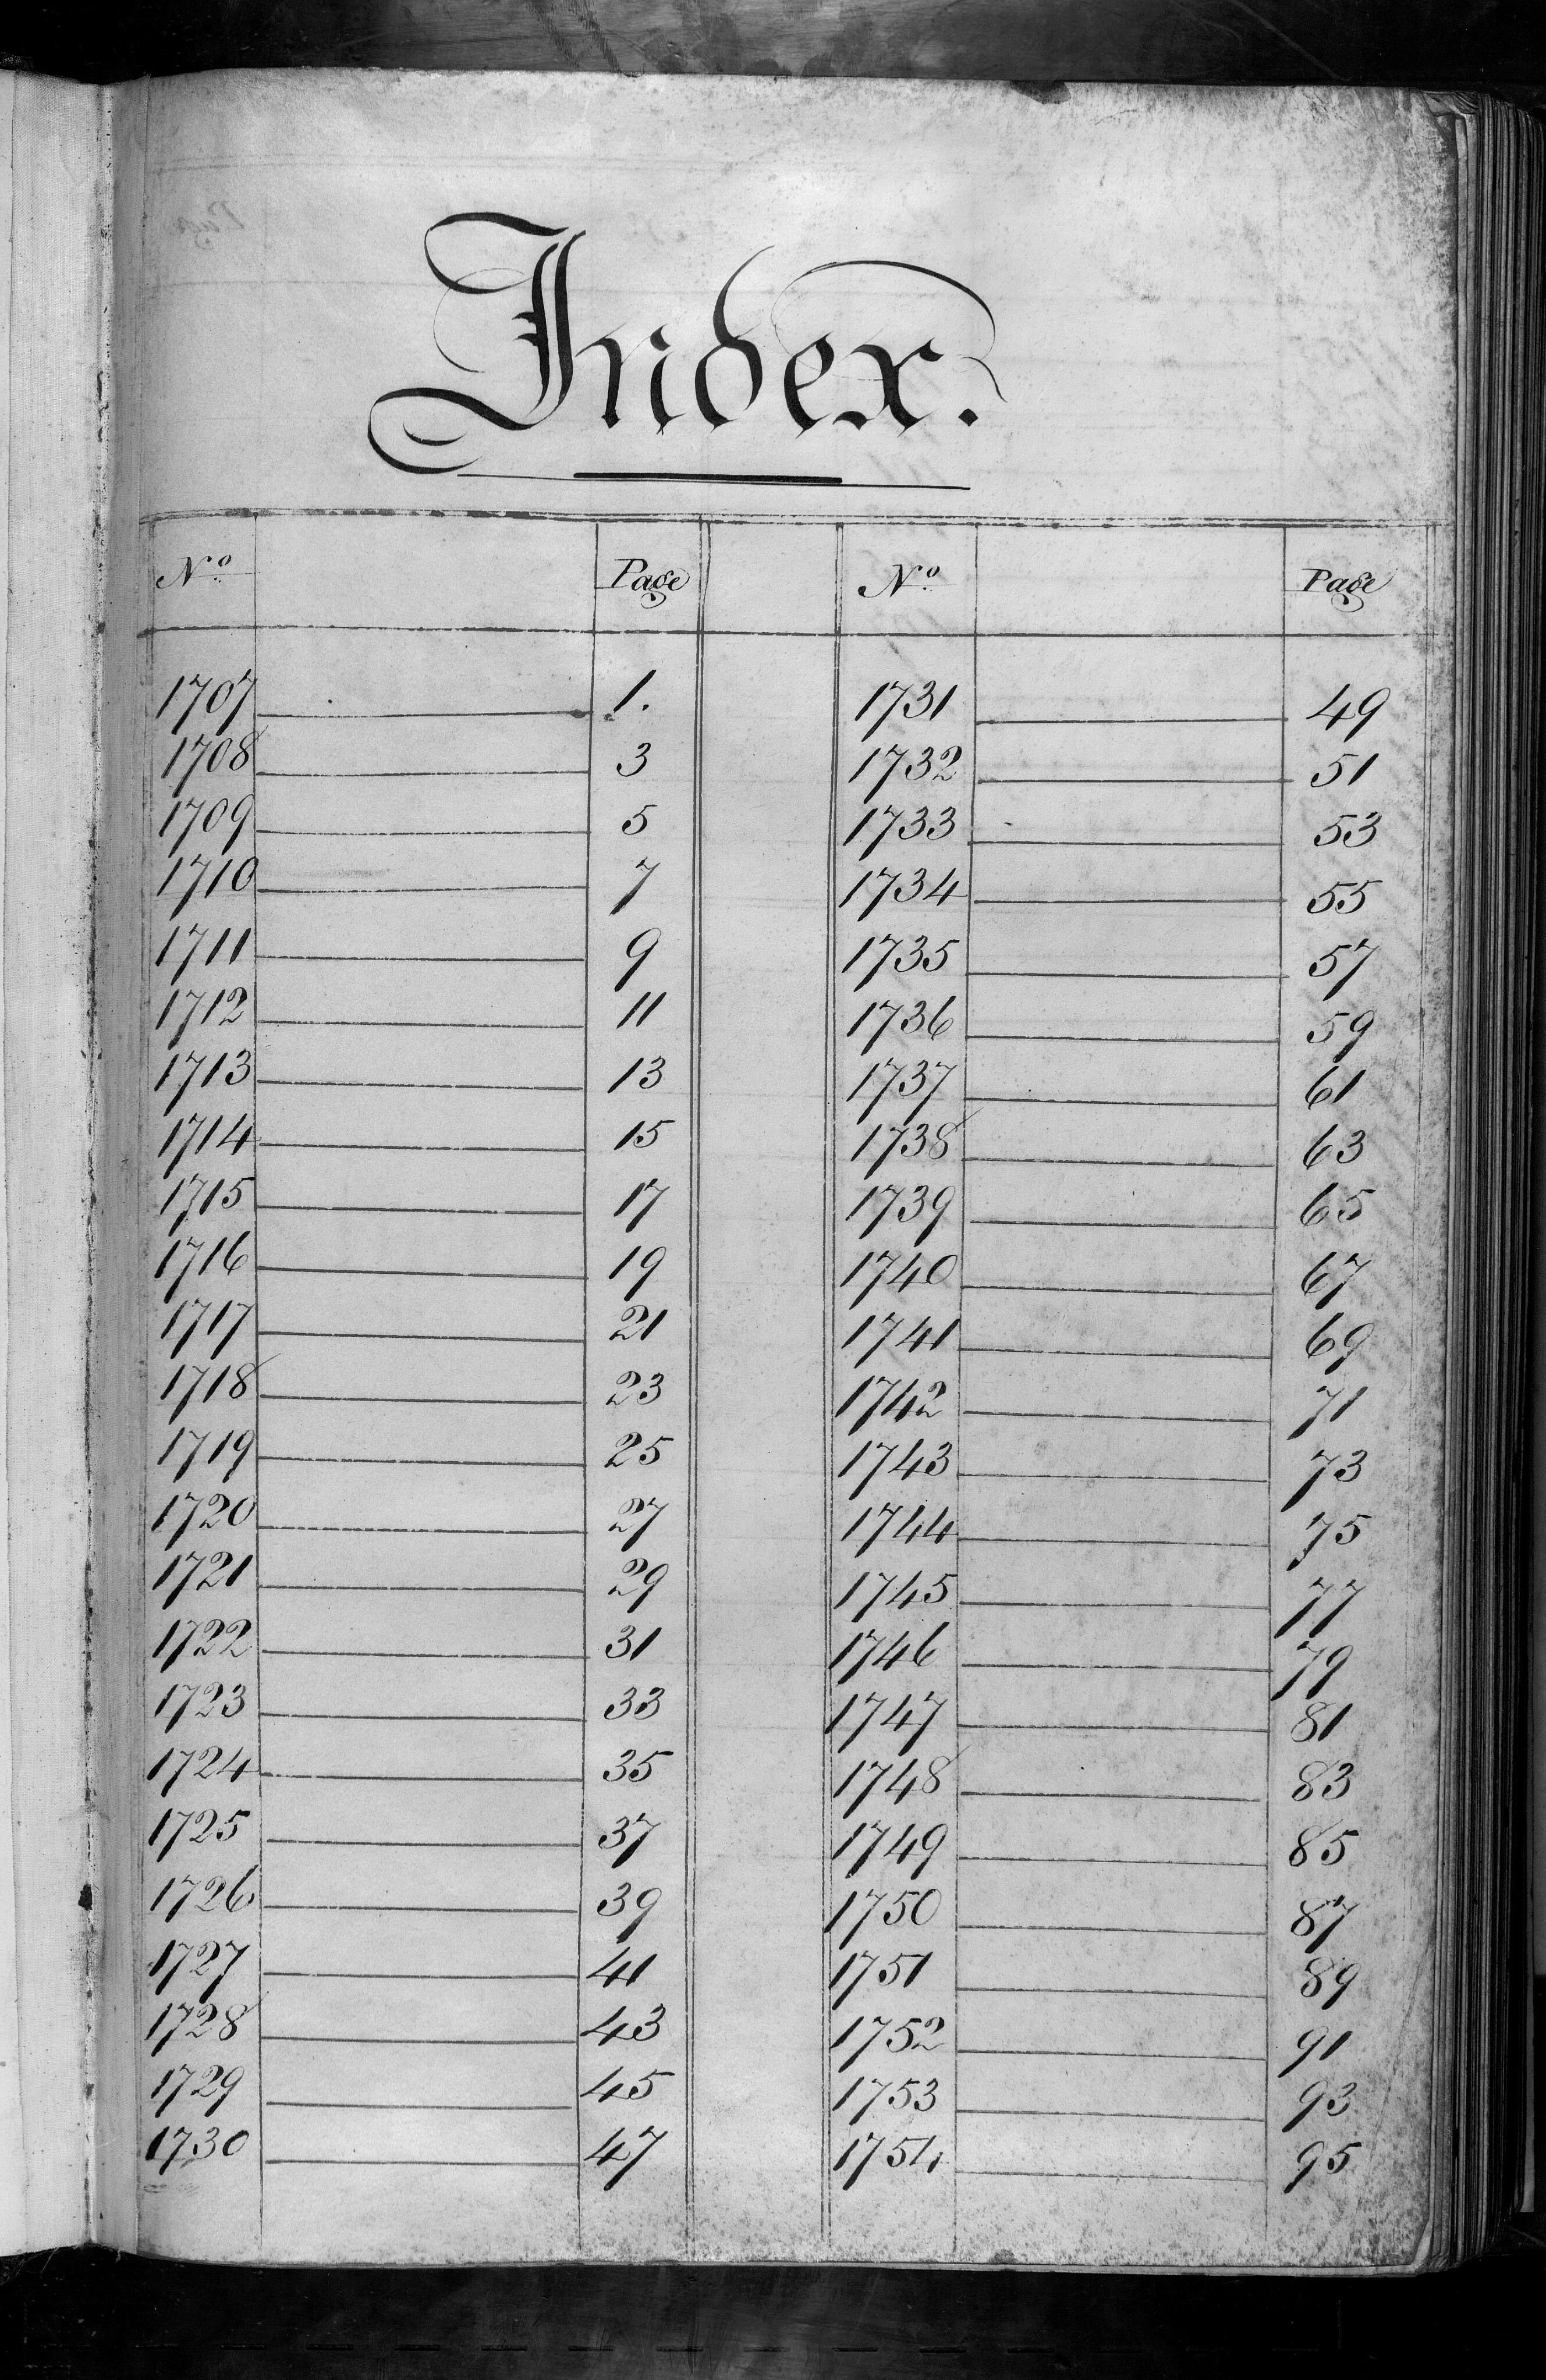 Index.
Nº Page Nº Page
1707 1. 1731 49
1708 3 1732 51
1709 5 1733 53
1710 7 1734 55
1711 9 1735 57
1712 11 1736 59
1713 13 1737 61
1714 15 1738 63
1715 17 1739 65
1716 19 1740 67
1717 21 1741 69
1718 23 1742 71
1719 25 1743 73
1720 27 1744 75
1721 29 1745 77
1722 31 1746 79
1723 33 1747 81
1724 35 1748 83
1725 37 1749 85
1726 39 1750 87
1727 41 1751 89
1728 43 1752 91
1729 45 1753 93
1730 47 1754 95